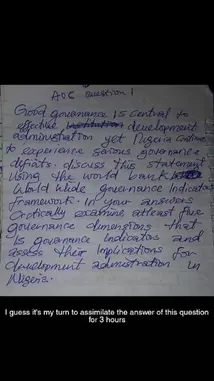 AOC Question 1
Good governance is central to
effective institution development
administration yet Nigeria continue
to experience serious governance
deficits. discuss this statement
Using the world bank
World wide governance Indicators
framework. In your answers
Critically examine atleast five
governance dimensions that
is governance Indicators and
assess their implications for
development administration in
Nigeria.
I guess it's my turn to assimilate the answer of this question
for 3 hours